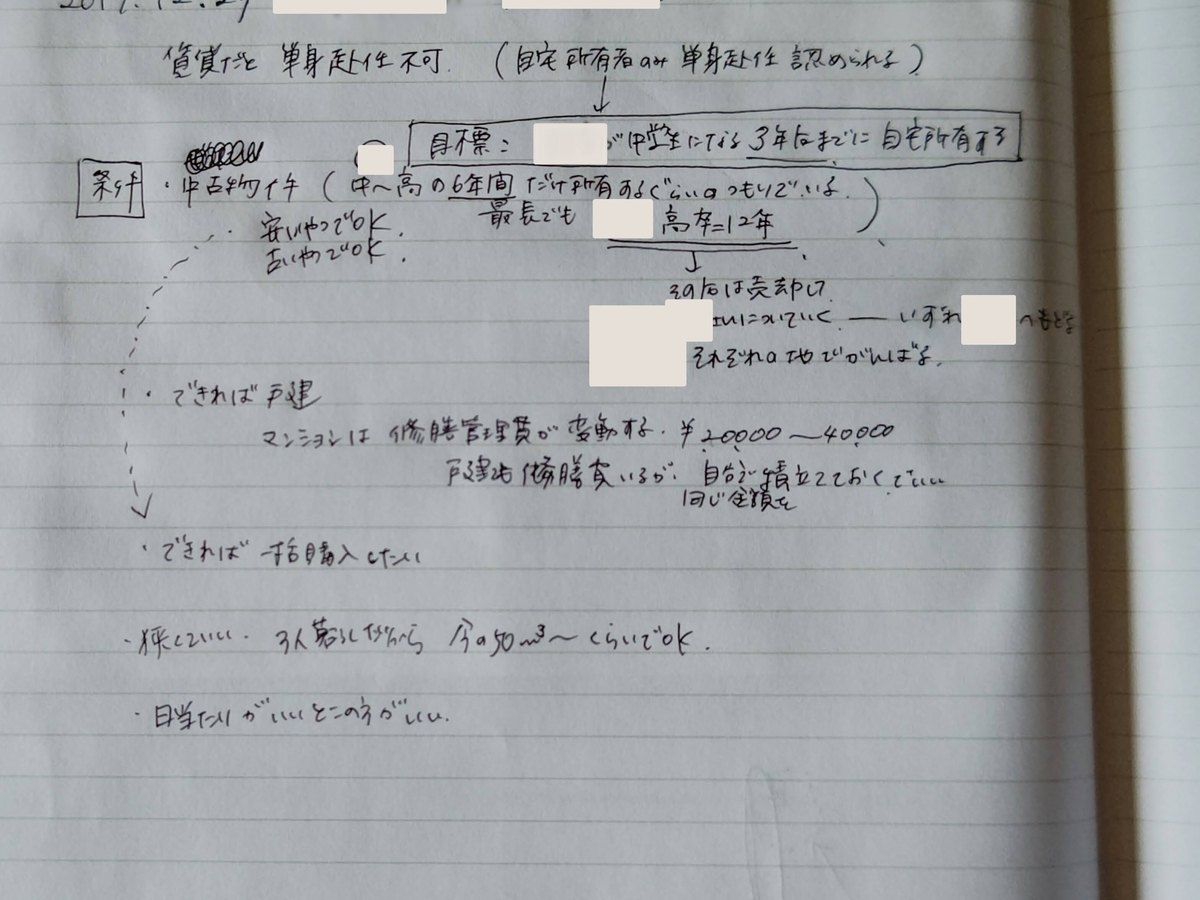 2017.12.27
賃貸だと 単身赴任不可. (自宅所有者のみ 単身赴任 認められる)
目標: が中学生になる 3年后までに 自宅所有する
条件 ・中古物件 ( 中〜高の6年間 だけ所有するぐらいのつもりでいる.
最長でも 高卒=12年 )
・安いやつでOK.
古いやつでOK.
その后は売却して
についていく. — いずれ へもどる
それぞれの地でがんばる.
・できれば 戸建
マンションは 修膳管理費が 変動する. ¥20000〜40000
戸建も 修膳費いるが. 自分で積立てておくでいい
同じ金額を
・できれば 一括購入したい
・狭くていい. 3人暮らしだから 今の50m³〜くらいでOK.
・日当たりがいいとこの方がいい.